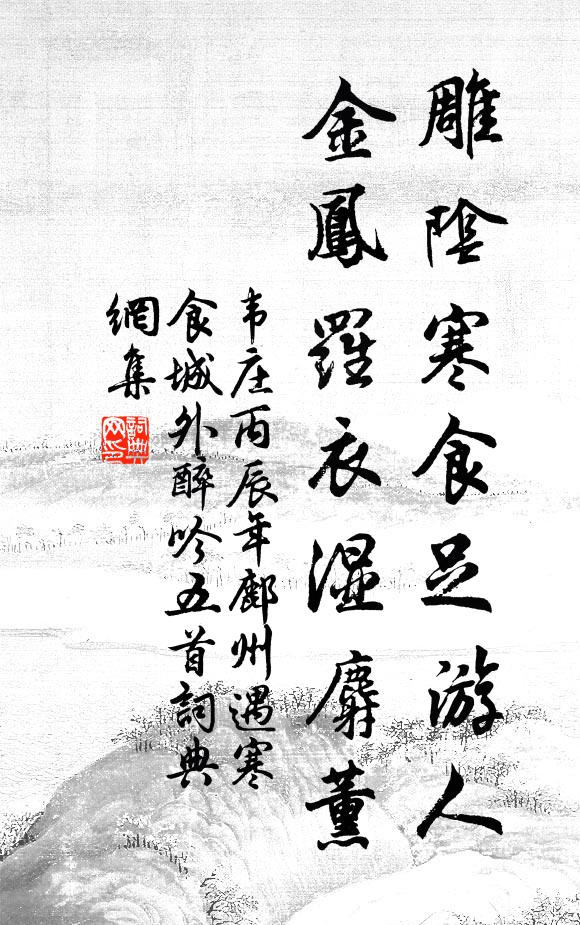 雕陰寒食足游人
金鳳羅衣濕麝薰
韦庄丙辰年鄜州遇寒
食城外醉吟五首詞典
網集
詞典
网印